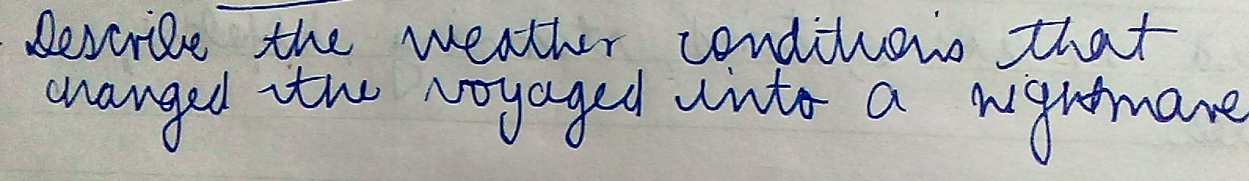 Describe the weather conditions that
changed the voyaged into a nightmare